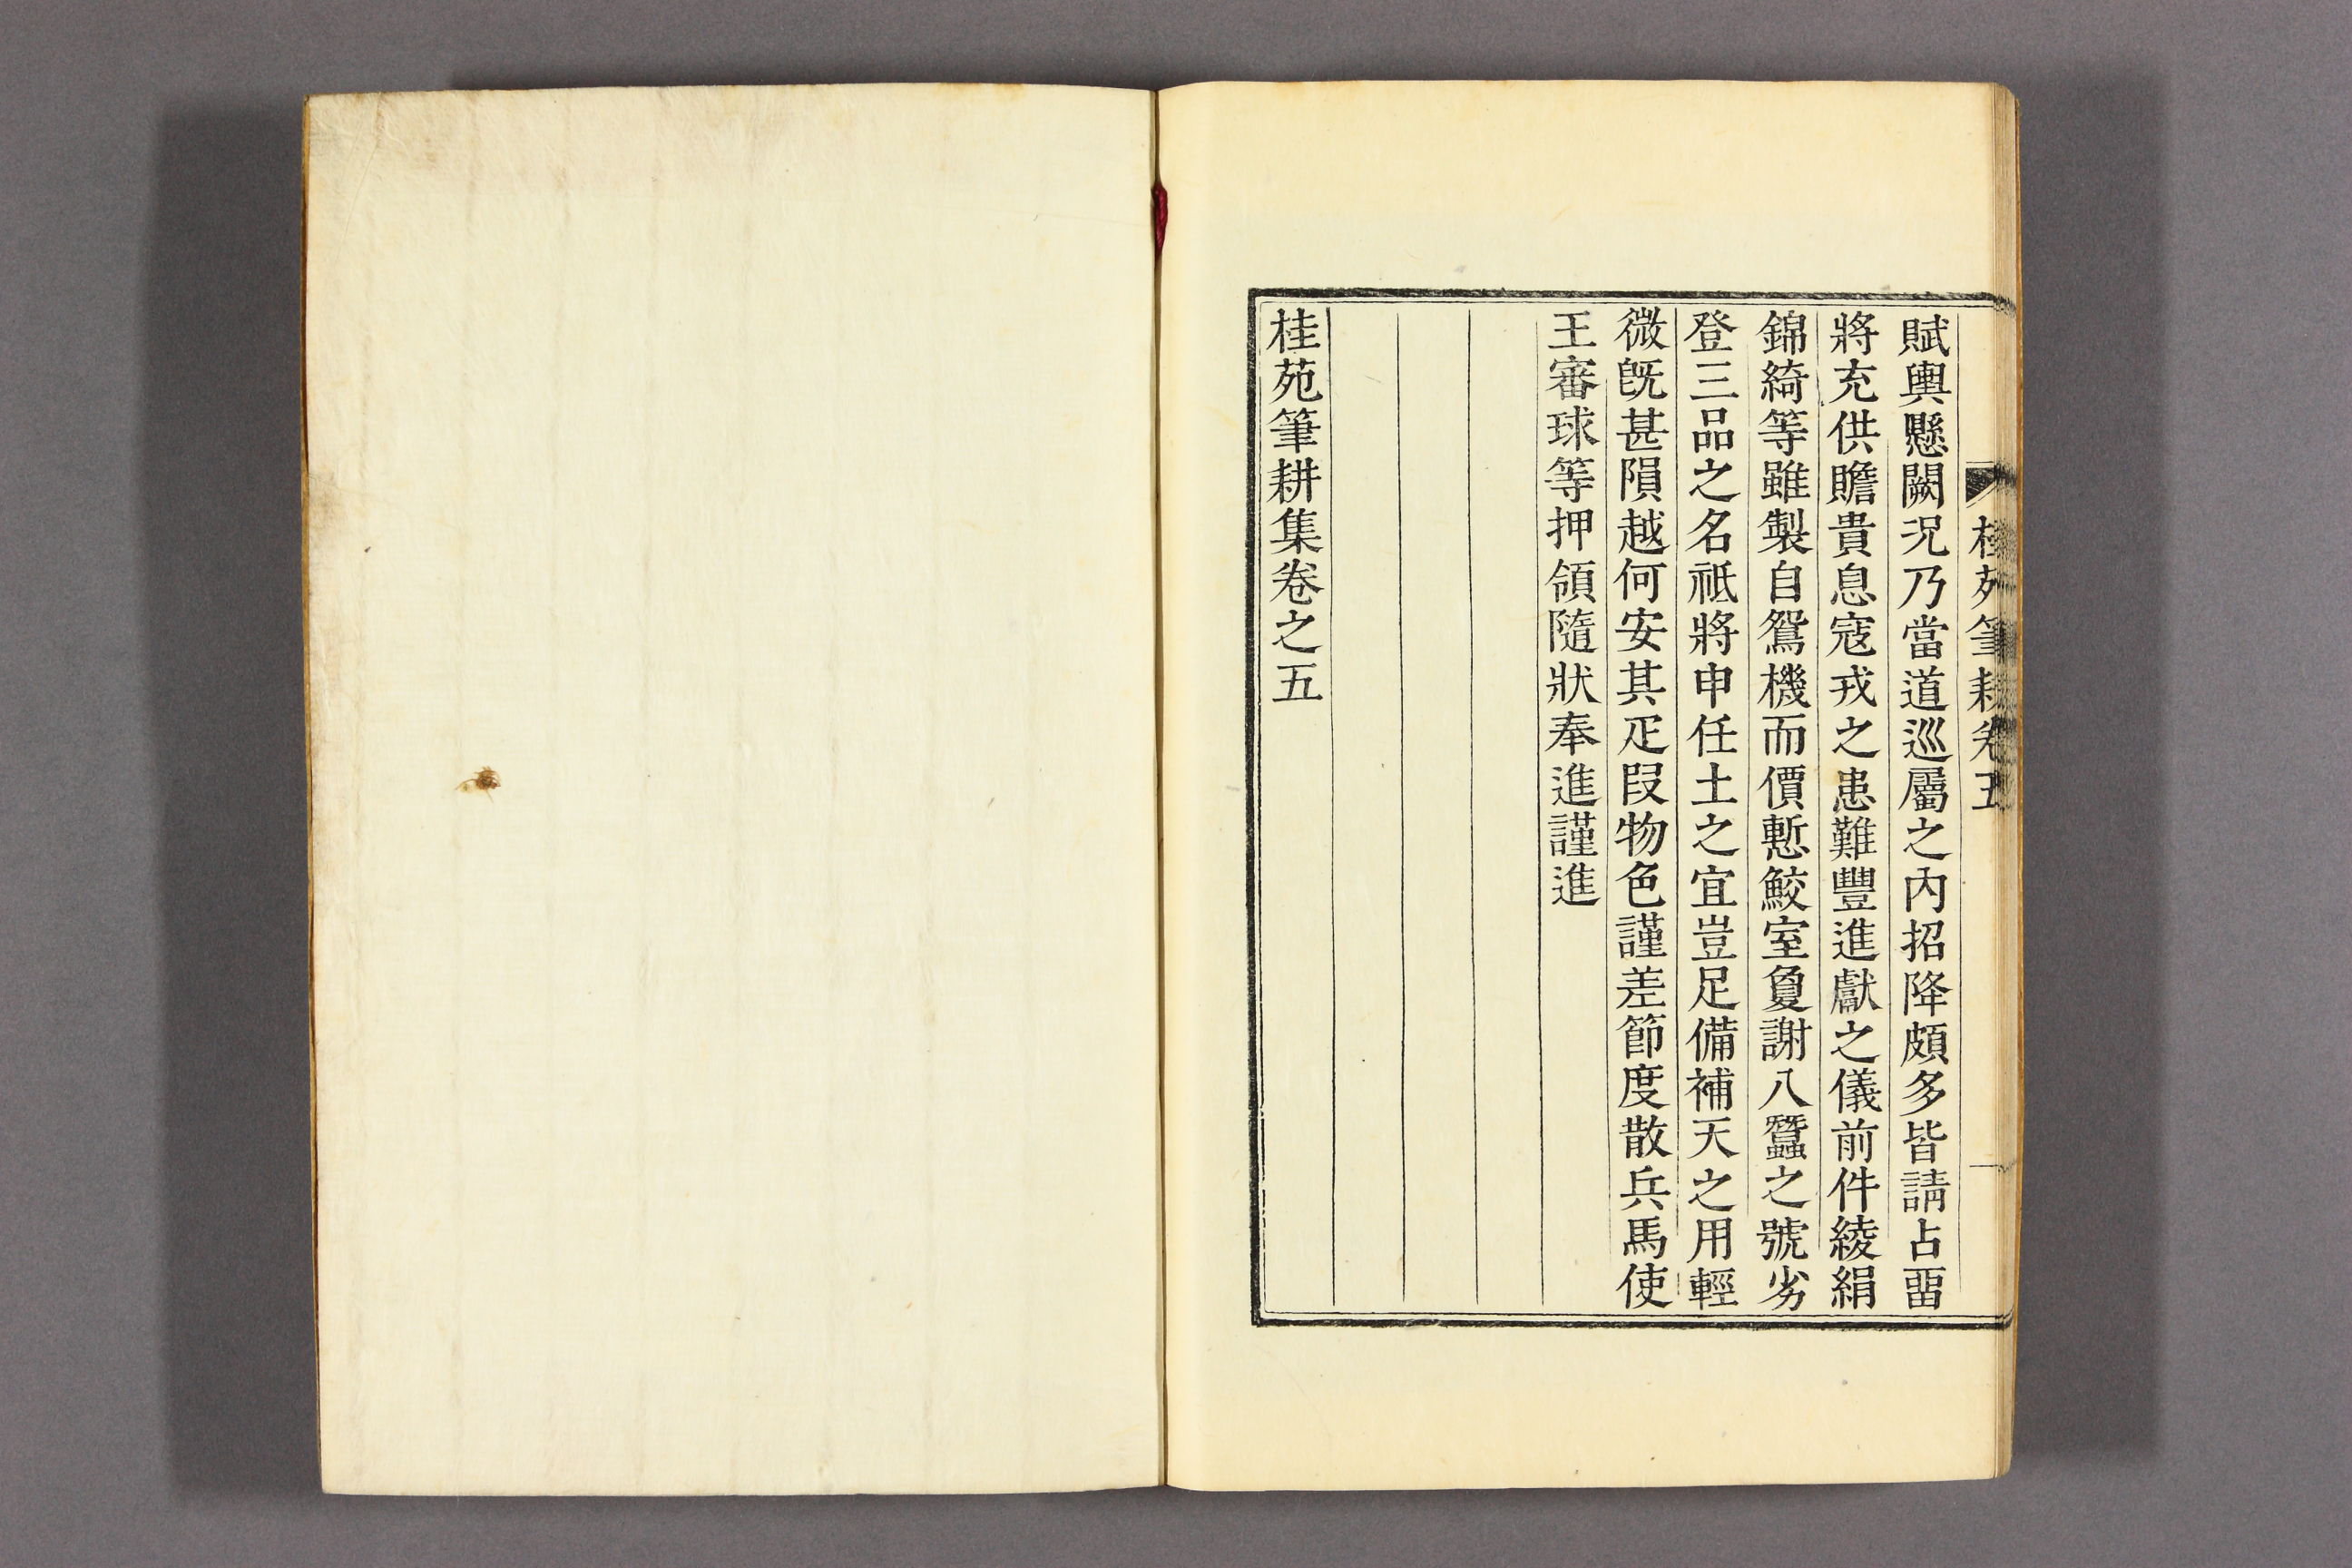 桂苑筆耕卷五
賦輿懸闕况乃當道巡屬之內招降頗多皆請占畱
將充供贍貴息寇戎之患難豐進獻之儀前件綾絹
錦綺等雖製自鴛機而價慙鮫室敻謝八蠶之號劣
登三品之名祗將申任土之宜豈足備補天之用輕
微旣甚隕越何安其疋段物色謹差節度散兵馬使
王審球等押領隨狀奉進謹進
桂苑筆耕集卷之五